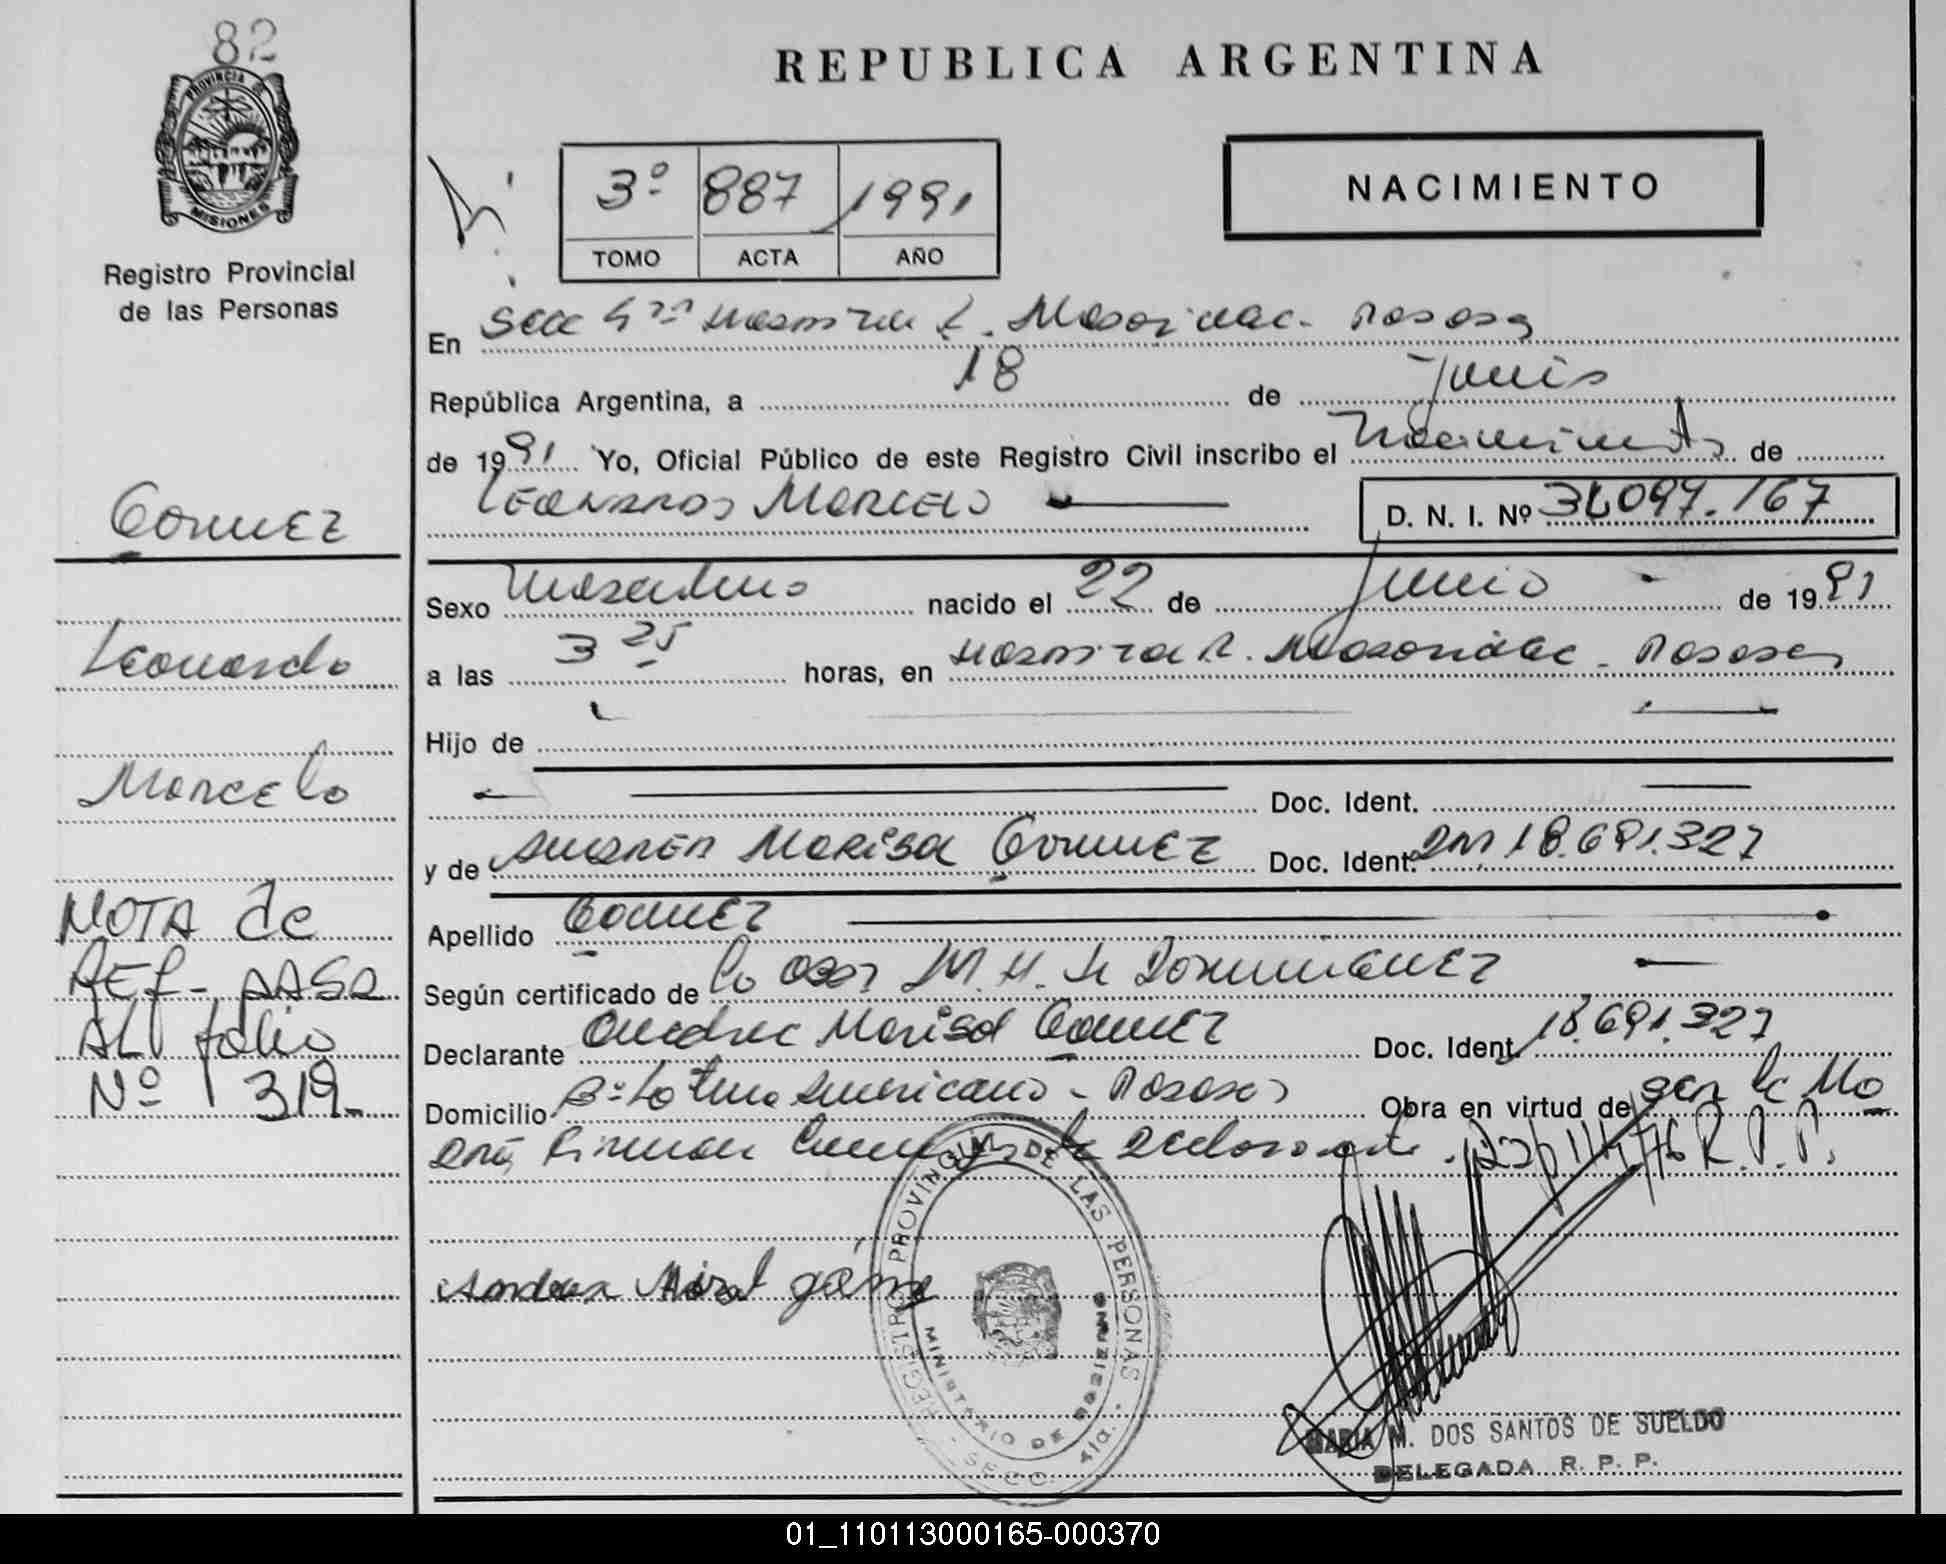 82
PROVINCIA DE
MISIONES
Registro Provincial
de las Personas
REPUBLICA ARGENTINA
3º 887 1991
TOMO ACTA AÑO
NACIMIENTO
En Sec 4ta Maternidad Posadas
República Argentina, a 18 de junio
de 1991 Yo, Oficial Público de este Registro Civil inscribo el Nacimiento de
LEONARDO MARCELO
D. N. I. Nº 36097.167
Sexo Masculino nacido el 22 de junio de 1991
a las 3 25 horas, en Maternidad Posadas
Hijo de
Doc. Ident.
y de ANDREA MARISA GOMEZ Doc. Ident. DNI 18.691.327
Apellido GOMEZ
Según certificado de la M. H. de DOMINGUEZ
Declarante Andrea Marisa GOMEZ Doc. Ident. 18.691.327
Domicilio Bº Latino Americano - Posadas Obra en virtud de ser la Ma
dre, Firman la declarante R.P.P.
Andrea
REGISTRO PROVINCIAL DE LAS PERSONAS
MINISTERIO DE GOBIERNO
SECC. 4ta.
MARIA M. DOS SANTOS DE SUELDO
DELEGADA R. P. P.
GOMEZ
Leonardo
Marcelo
NOTA de
REF- PASA
AL folio
Nº 319-
01_110113000165-000370